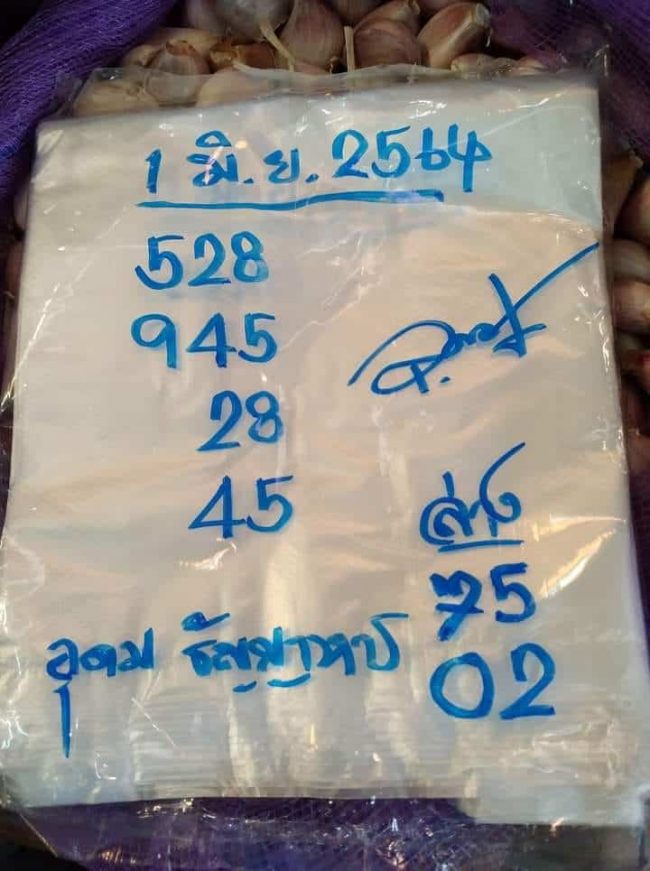 1 มิ.ย. 2564
528
945
28
45
ล่าง
75
02
อุดม ธัญญาวาป